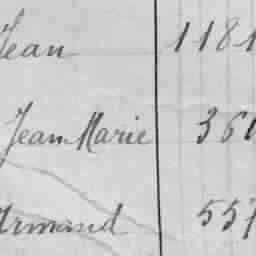 Jean 1181
Jean Marie 360
Armand 557